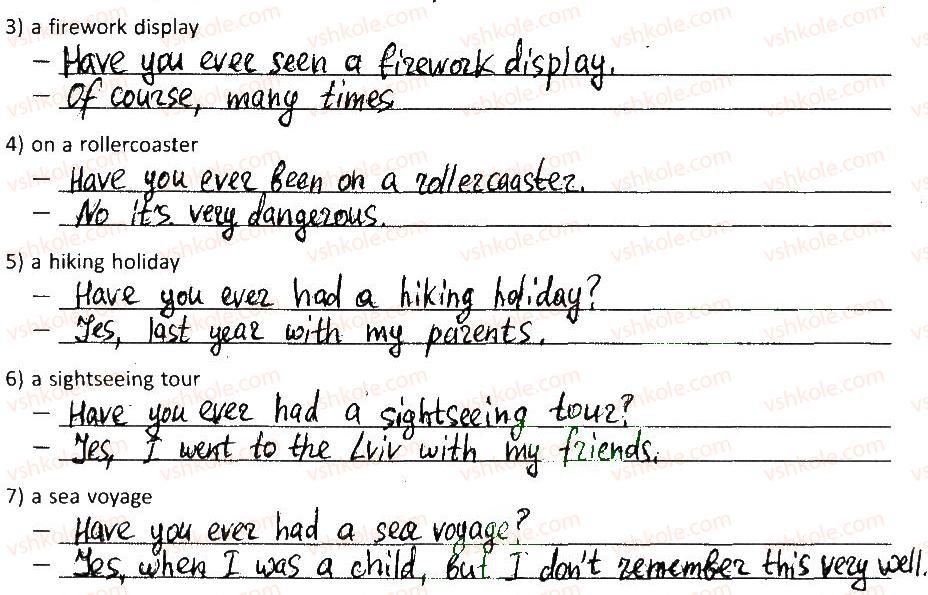 3) a firework display
– Have you ever seen a firework display.
– Of course, many times
4) on a rollercoaster
– Have you ever been on a rollercaaster.
– No it's very dangerous.
5) a hiking holiday
– Have you ever had a hiking holiday?
– Yes, last year with my parents.
6) a sightseeing tour
– Have you ever had a sightseeing tour?
– Yes, I went to the Lviv with my friends.
7) a sea voyage
– Have you ever had a sea voyage?
– Yes, when I was a child, but I don't remember this very well.
vshkole.com